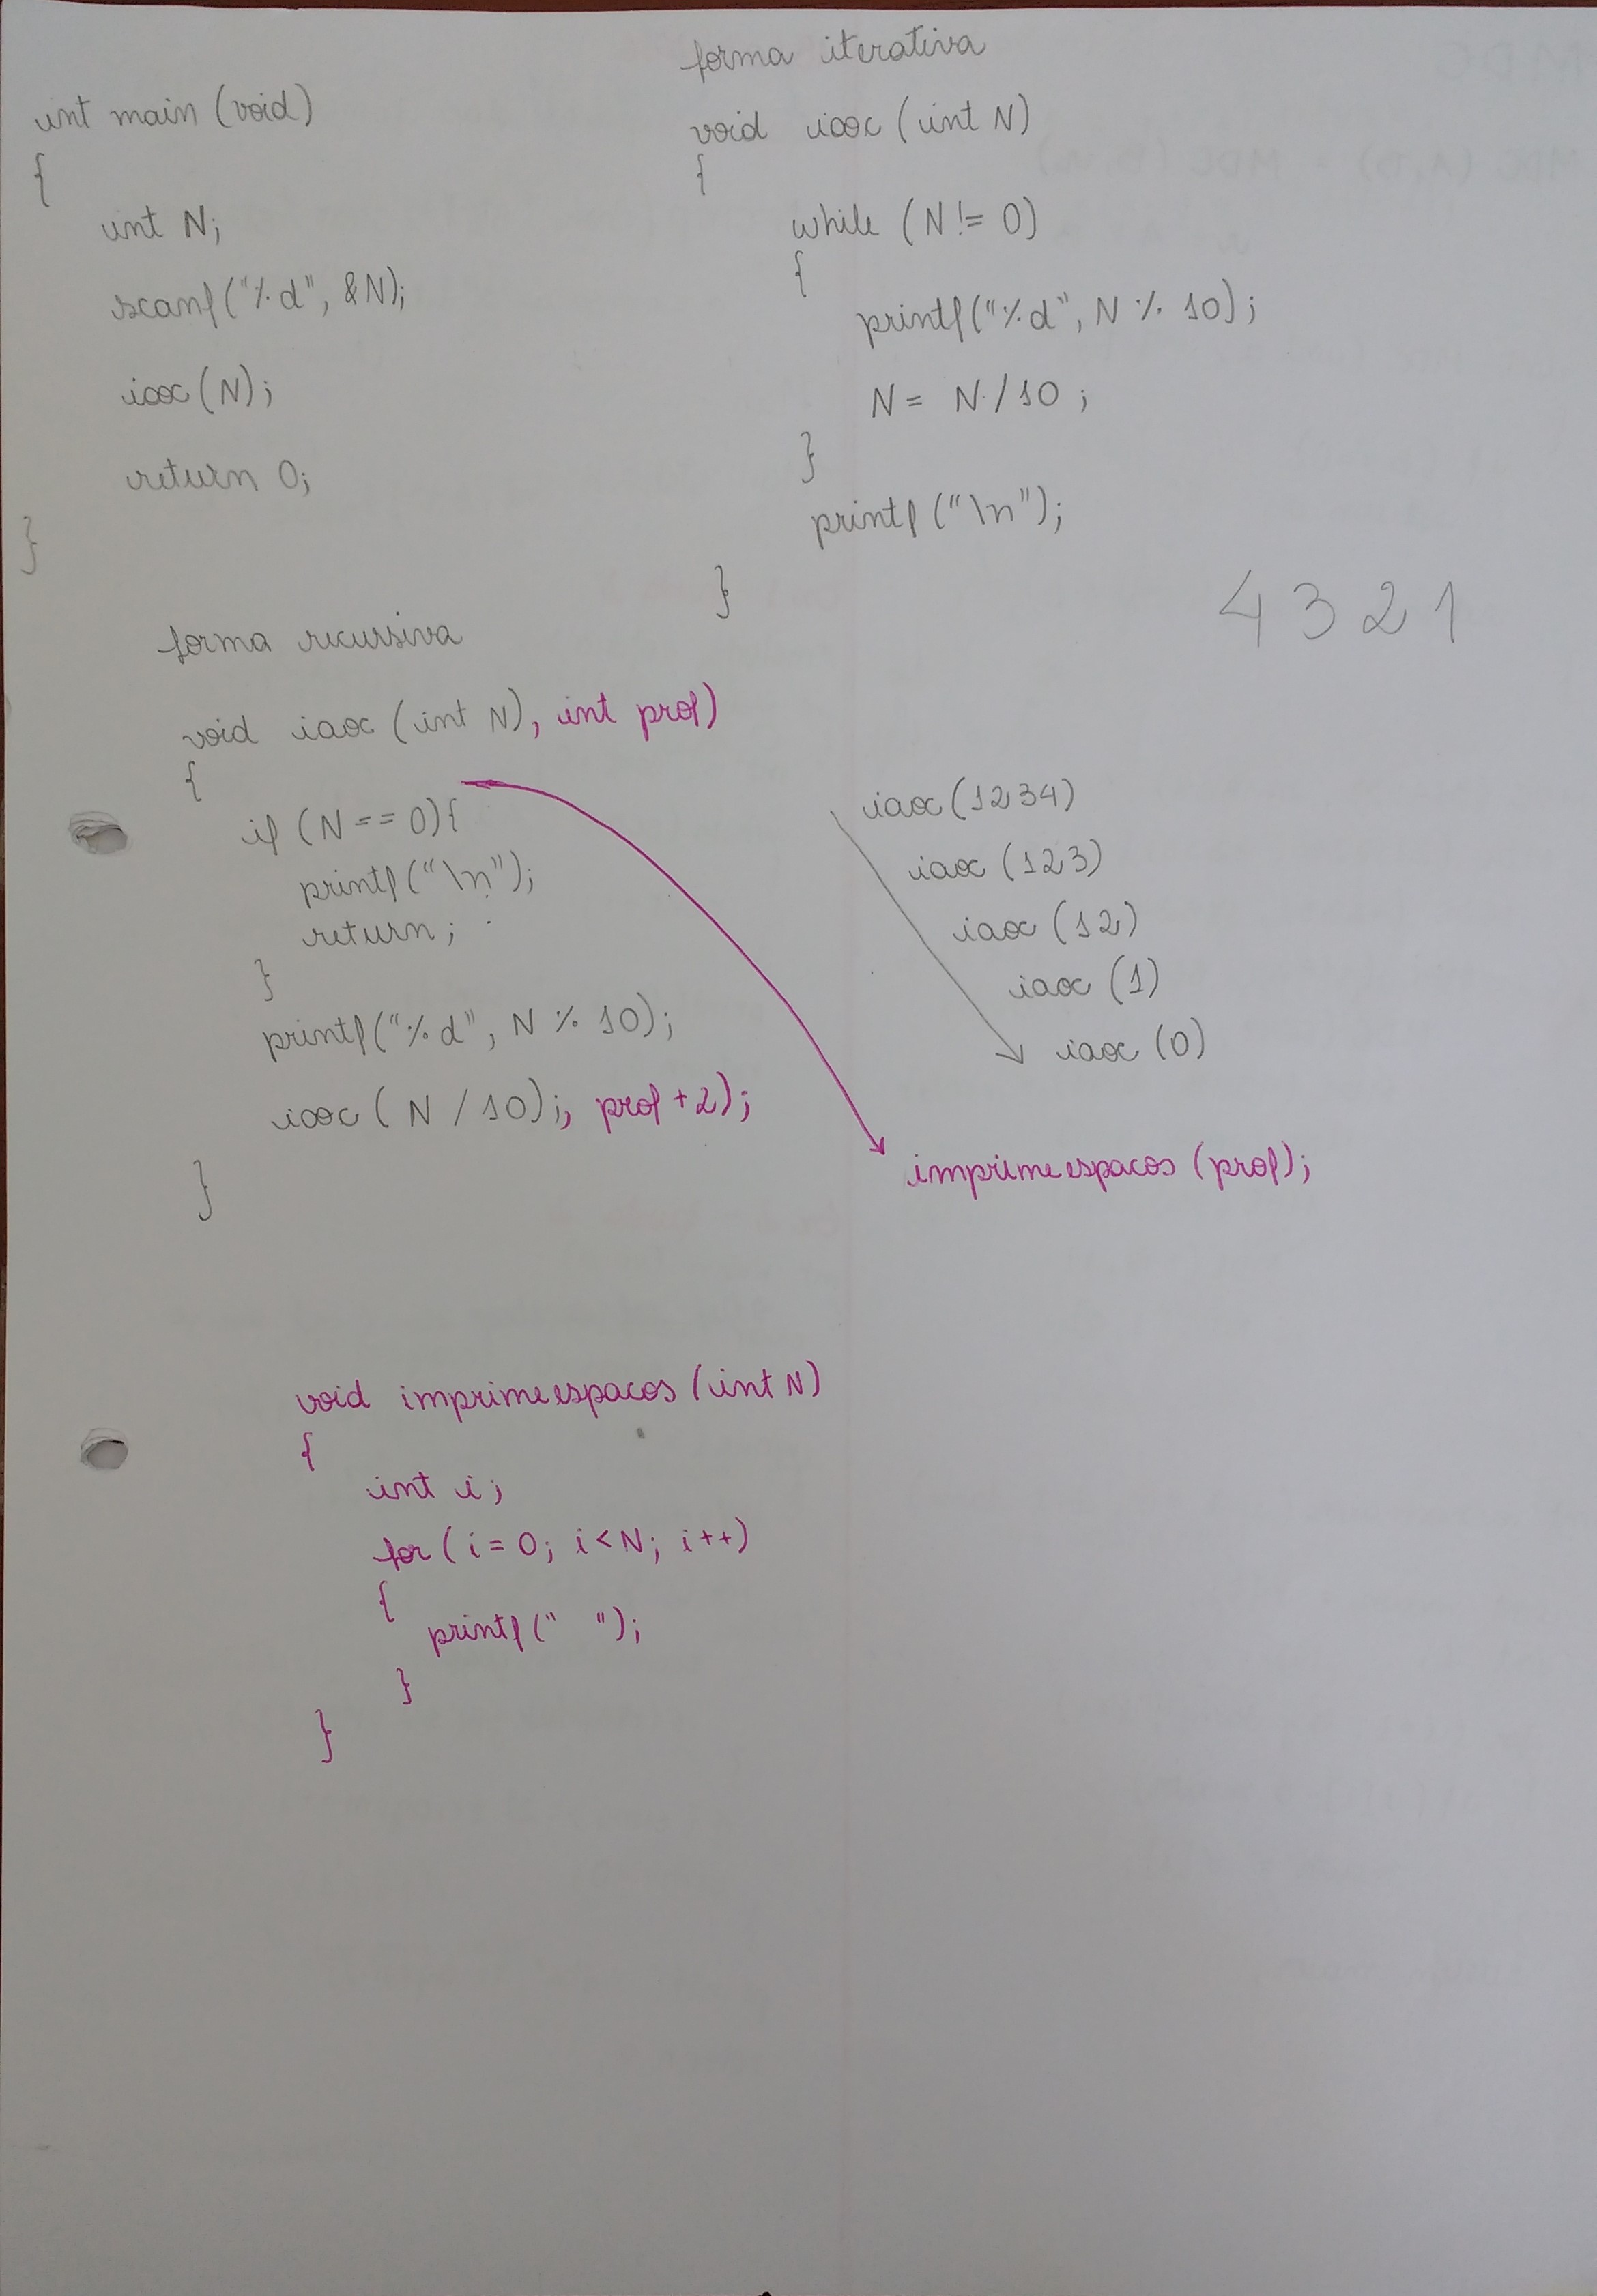 int main (void)
{
int N;
scanf("%d", &N);
iaoc(N);
return 0;
}
forma iterativa
void iaoc (int N)
{
while (N != 0)
{
printf("%d", N % 10);
N = N / 10 ;
}
printf ("\n");
}
4 3 2 1
forma recursiva
void iaoc (int N), int prof)
{
if (N == 0){
printf("\n");
return;
}
printf("%d", N % 10);
iaoc ( N / 10);, prof +2);
}
iaoc (1234)
iaoc (123)
iaoc (12)
iaoc (1)
iaoc (0)
imprimeespacos (prof);
void imprimeespacos (int N)
{
int i;
for ( i = 0; i < N; i ++)
{
printf (" ");
}
}